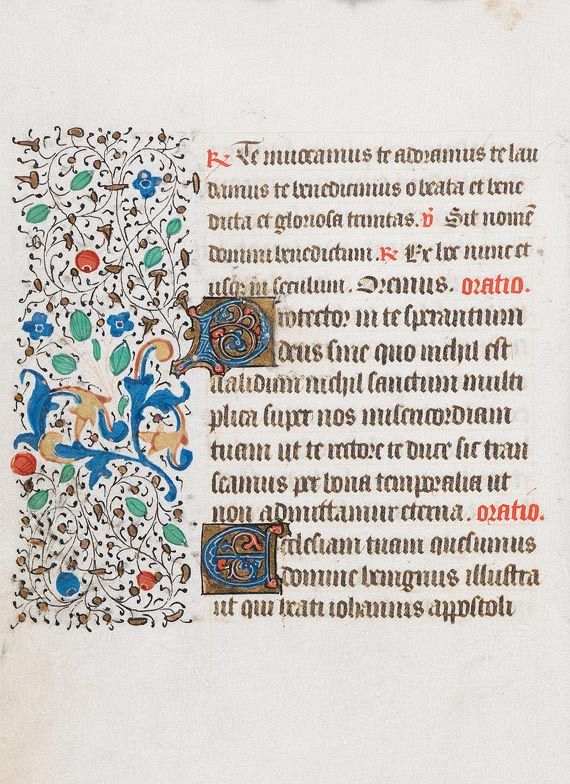 R Te inuocamus te adoramus te lau
damus te benedicimus o beata et bene
dicta et gloriosa trinitas. v Sit nomē
domini benedictum. R Ex hoc nunc et
usq; in seculum. Oremus. oratio.
Protector in te sperantium
deus sine quo nichil est
ualidum nichil sanctum multi
plica super nos misericordiam
tuam ut te rectore te duce sic tran
seamus per bona temporalia ut
non admittamus eterna. oratio.
Ecclesiam tuam quesumus
domine benignus illustra
ut qui beati iohannis appostoli